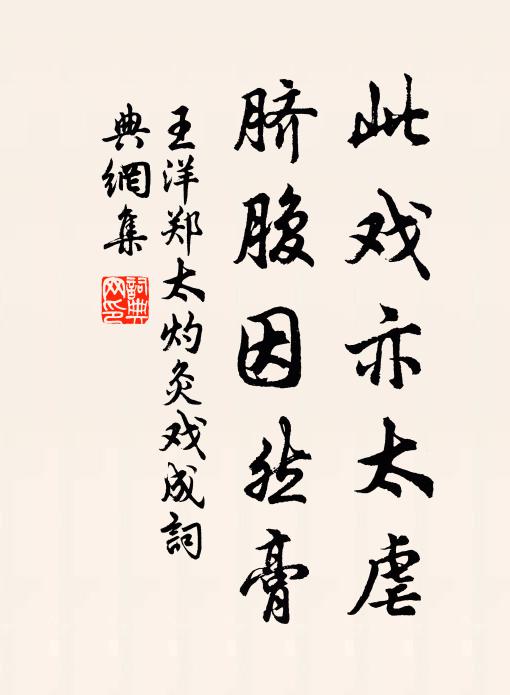 此戏亦太虐
脐腹因然膏
王洋郑太灼灸戏成詞
典網集
詞典网印